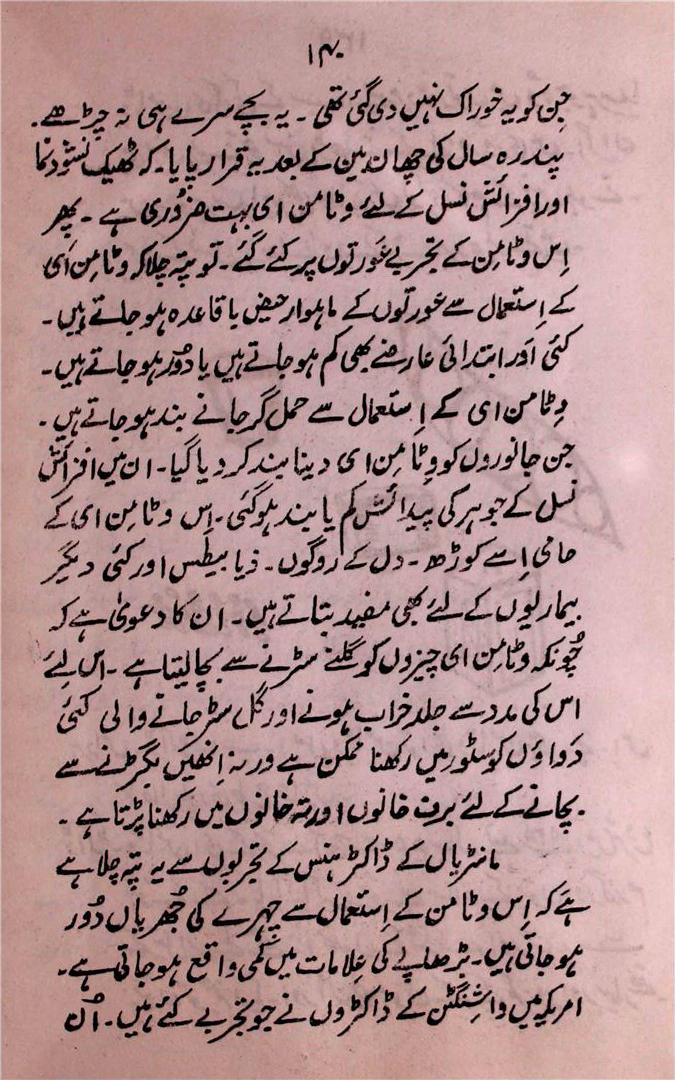 ۱۴۰
جن کو یہ خوراک نہیں دی گئی تھی ۔ یہ بچے سرے ہی نہ چڑھے ۔
پندرہ سال کی چھان بین کے بعد یہ قرار پایا ۔ کہ ٹھیک نشو و نما
اور افزائش نسل کے لئے وٹامن ای بہت ضروری ہے ۔ پھر
اِس وٹامن کے تجربے عورتوں پر کئے گئے ۔ تو پتہ چلا کہ وٹامن ای
کے اِستعمال سے عورتوں کے ماہوار حیض با قاعدہ ہو جاتے ہیں ۔
کئی اور ابتدائی عارضے بھی کم ہو جاتے ہیں یا دُور ہو جاتے ہیں ۔
وِٹامن ای کے اِستعمال سے حمل گر جانے بند ہو جاتے ہیں ۔
جن جانوروں کو وِٹامِن ای دینا بند کر دیا گیا ۔ ان میں افزائش
نسل کے جوہر کی پیدائش کم یا بند ہو گئی ۔ اِس وٹامن ای کے
حامی اِسے کوڑھ ۔ دل کے روگوں ۔ ذیابیطس اور کئی دیگر
بیماریوں کے لئے بھی مفید بتاتے ہیں ۔ ان کا دعویٰ ہے کہ
چُونکہ وٹامن ای چیزوں کو گلنے سڑنے سے بچا لیتا ہے ۔ اس لِئے
اس کی مدد سے جلد خراب ہونے اور گل سڑ جانے والی کئی
دَواؤں کو سٹور میں رکھنا ممکن ہے ورنہ اِنھیں بگڑنے سے
بچانے کے لئے برف خانوں اور تہ خانوں میں رکھنا پڑتا ہے ۔
مانٹریال کے ڈاکٹر ہنس کے تجربوں سے یہ پتہ چلا ہے
ہے کہ اِس وٹامن کے اِستعمال سے چہرے کی جُھریاں دُور
ہو جاتی ہیں ۔ بڑھاپے کی علامات میں کمی واقع ہو جاتی ہے ۔
امریکہ میں واشنگٹن کے ڈاکٹروں نے جو تجربے کئے ہیں ۔ اُن